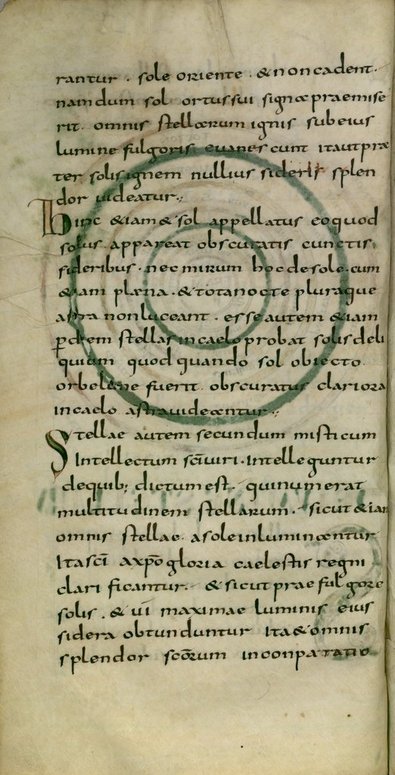 rantur . sole oriente . & non cadent .
nam dum sol ortus sui signa praemise
rit . omnis stellarum ignis sub eius
lumine fulgoris evanescunt ita ut prae
ter solis ignem nullius sideris splen
dor videatur .,
Hinc & iam & sol appellatus eo quod
solus appareat obscuratis cunctis
sideribus . nec mirum hoc de sole . cum
& iam plæna . & tota nocte pluraque
astra non luceant . esse autem & iam
per diem stellas in caelo probat solis deli
quium quod quando sol obiecto
orbe lunae fuerit obscuratus clariora
in caelo astra videantur .,
Stellae autem secundum misticum
Intellectum sc̄i viri . Intelleguntur
de quib; dictum est . qui numerat
multitudinem stellarum . sicut & iam
omnis stellae a sole inluminantur
Ita sc̄i a xp̄o gloria caelestis regni
clari ficantur . & sicut prae fulgore
solis . & vi maximae luminis eius
sidera obtunduntur Ita & omnis
splendor sc̄orum in conpa ratio